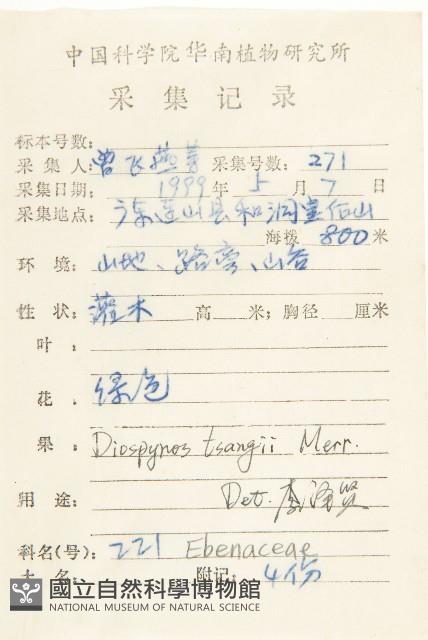 中国科学院华南植物研究所
采集记录
标本号数:
采集人: 曾飞燕等 采集号数: 271
采集日期: 1999 年 5 月 7 日
采集地点: 广东连山县和洞
海拨 800 米
环 境: 山地、路旁、山谷
性 状: 灌木 高 米; 胸径 厘米
叶 :
花 : 绿色
果 : Diospynos tsangii Merr.
用 途: Det. 李泽贤
科名(号): 221 Ebenaceae
附记: 4份
國立自然科學博物館
NATIONAL MUSEUM OF NATURAL SCIENCE